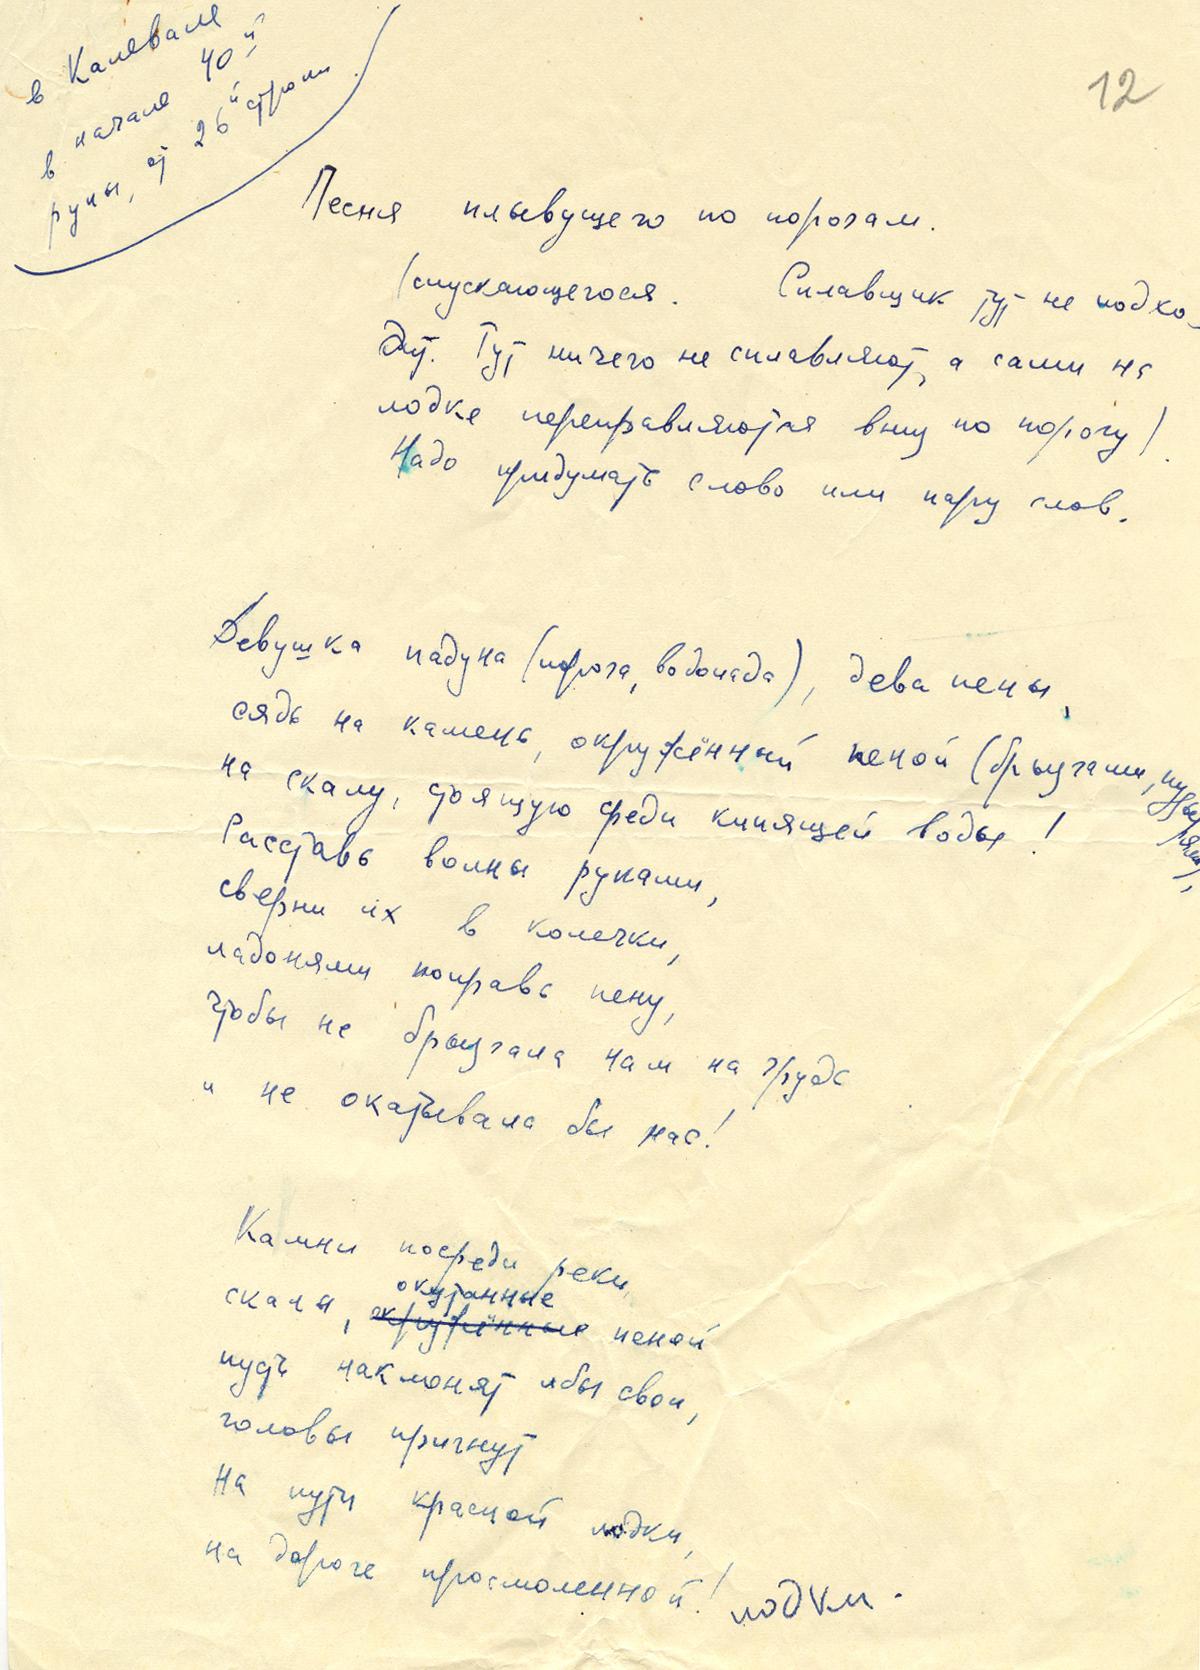 в Калевале
в начале 40й
руны, от 26й строки
12
Песня плывущего по порогам.
(спускающегося. Сплавщик тут не подхо-
дит. Тут ничего не сплавляют, а сами на
лодке переправляются вниз по порогу)
Надо придумать слово или пару слов.
Девушка падуна (порога, водопада), дева пены,
сядь на камень, окружённый пеной (брызгами, пузырями),
на скалу, стоящую среди кипящей воды!
Расставь волны руками,
сверни их в колечки,
ладонями поправь пену,
чтобы не брызгала нам на грудь
и не окатывала бы нас!
Камни посреди реки,
окутанные
скалы, окружённые пеной
пусть наклонят лбы свои,
головы пригнут
На пути красной лодки,
на дороге просмоленной! лодки.